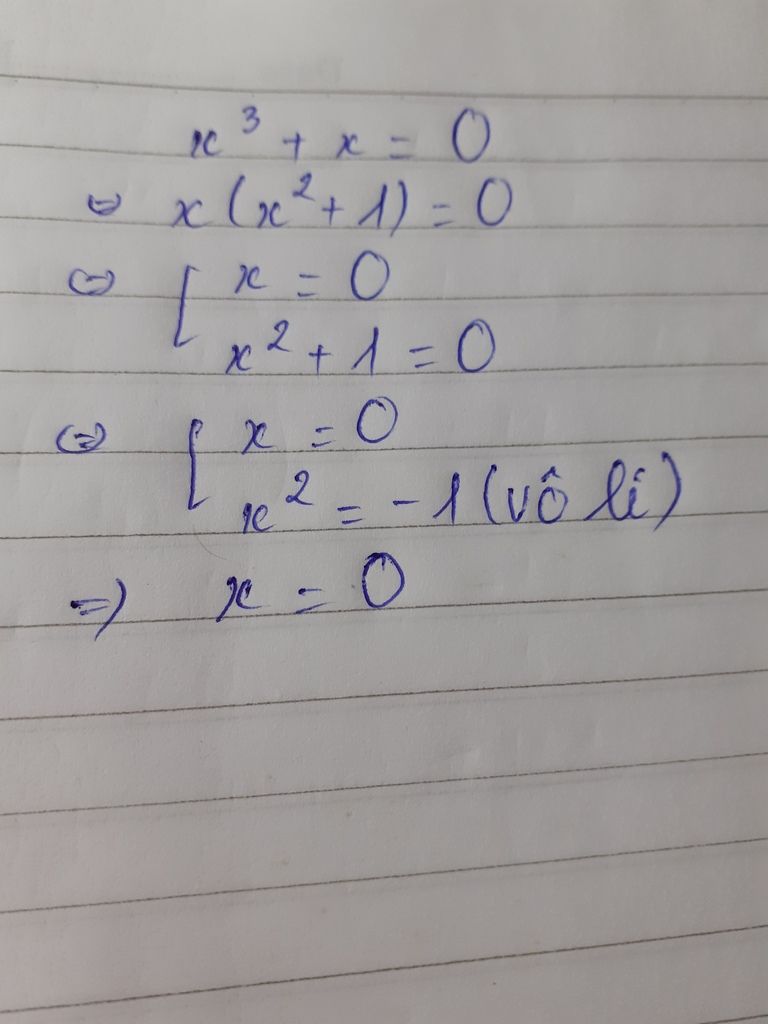 x³ + x = 0
⇔ x(x² + 1) = 0
⇔ [ x = 0
x² + 1 = 0
⇔ [ x = 0
x² = -1 (vô lí)
⇒ x = 0